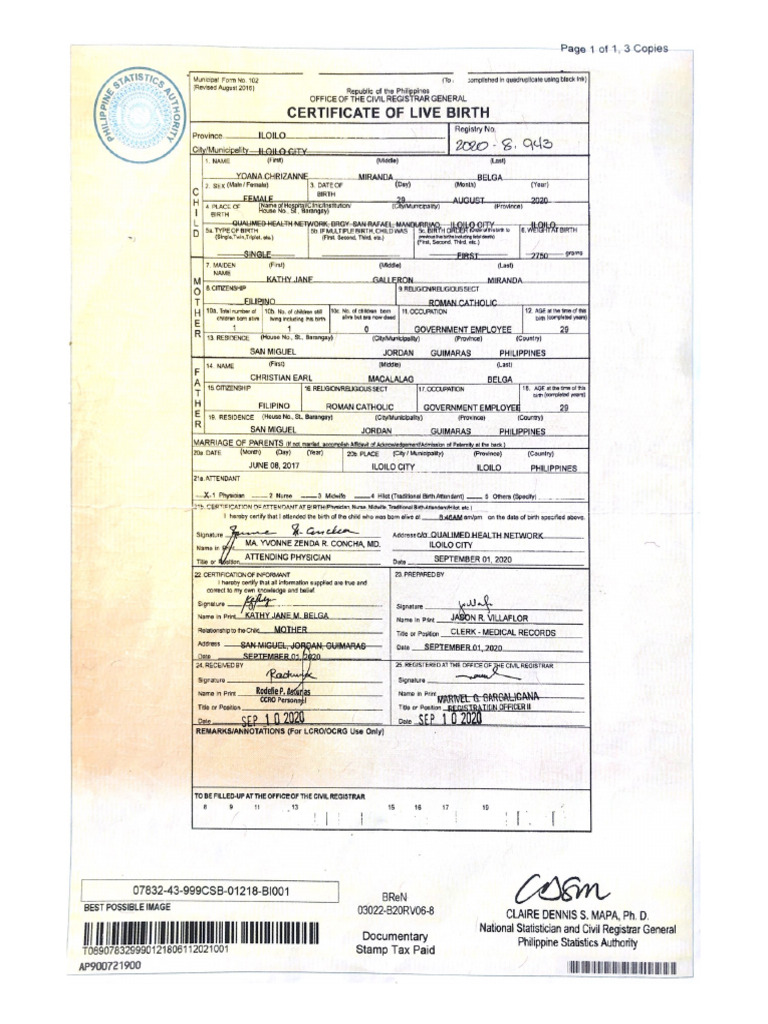 Page 1 of 1, 3 Copies
PHILIPPINE STATISTICS AUTHORITY
Municipal Form No. 102
(Revised August 2016)
(To completed in quadruplicate using black ink)
Republic of the Philippines
OFFICE OF THE CIVIL REGISTRAR GENERAL
CERTIFICATE OF LIVE BIRTH
Province ILOILO
Registry No.
City/Municipality ILOILO CITY
2020-8,943
CHILD
1. NAME (First) (Middle) (Last)
YOANA CHRIZANNE MIRANDA BELGA
2. SEX (Male / Female) 3. DATE OF BIRTH (Day) (Month) (Year)
FEMALE 29 AUGUST 2020
4. PLACE OF BIRTH (Name of Hospital/Clinic/Institution/ House No., St., Barangay) (City/Municipality) (Province)
QUALIMED HEALTH NETWORK, BRGY. SAN RAFAEL, MANDURRIAO, ILOILO CITY ILOILO
5a. TYPE OF BIRTH (Single, Twin, Triplet, etc.) 5b. IF MULTIPLE BIRTH, CHILD WAS (First, Second, Third, etc.) 5c. BIRTH ORDER (First, Second, Third, etc.) 6. WEIGHT AT BIRTH
SINGLE FIRST 2750 grams
MOTHER
7. MAIDEN NAME (First) (Middle) (Last)
KATHY JANE GALLERON MIRANDA
8. CITIZENSHIP 9. RELIGION/RELIGIOUS SECT
FILIPINO ROMAN CATHOLIC
10a. Total number of children born alive 10b. No. of children still living including this birth 10c. No. of children born alive but are now dead 11. OCCUPATION 12. AGE at the time of this birth (completed years)
1 1 0 GOVERNMENT EMPLOYEE 29
13. RESIDENCE (House No., St., Barangay) (City/Municipality) (Province) (Country)
SAN MIGUEL JORDAN GUIMARAS PHILIPPINES
FATHER
14. NAME (First) (Middle) (Last)
CHRISTIAN EARL MACALALAG BELGA
15. CITIZENSHIP 16. RELIGION/RELIGIOUS SECT 17. OCCUPATION 18. AGE at the time of this birth (completed years)
FILIPINO ROMAN CATHOLIC GOVERNMENT EMPLOYEE 29
19. RESIDENCE (House No., St., Barangay) (City/Municipality) (Province) (Country)
SAN MIGUEL JORDAN GUIMARAS PHILIPPINES
MARRIAGE OF PARENTS (If not married, accomplish Affidavit of Acknowledgement/Admission of Paternity at the back.)
20a. DATE (Month) (Day) (Year) 20b. PLACE (City / Municipality) (Province) (Country)
JUNE 08, 2017 ILOILO CITY ILOILO PHILIPPINES
21a. ATTENDANT
X 1 Physician 2 Nurse 3 Midwife 4 Hilot (Traditional Birth Attendant) 5 Others (Specify)
21b. CERTIFICATION OF ATTENDANT AT BIRTH (Physician, Nurse, Midwife, Traditional Birth Attendant/Hilot, etc.)
I hereby certify that I attended the birth of the child who was born alive at am/pm on the date of birth specified above.
Signature
Address c/o QUALIMED HEALTH NETWORK
Name in Print MA. YVONNE ZENDA R. CONCHA, MD. ILOILO CITY
Title or Position ATTENDING PHYSICIAN Date SEPTEMBER 01, 2020
22. CERTIFICATION OF INFORMANT
I hereby certify that all information supplied are true and
correct to my own knowledge and belief.
Signature
Name in Print KATHY JANE M. BELGA
Relationship to the Child MOTHER
Address SAN MIGUEL, JORDAN, GUIMARAS
Date SEPTEMBER 01, 2020
23. PREPARED BY
Signature
Name in Print JASON R. VILLAFLOR
Title or Position CLERK - MEDICAL RECORDS
Date SEPTEMBER 01, 2020
24. RECEIVED BY
Signature
Name in Print Rodelie P. Asturias
Title or Position CCRO Personnel
Date SEP 10 2020
25. REGISTERED AT THE OFFICE OF THE CIVIL REGISTRAR
Signature
Name in Print MARIVEL G. GARGALICANA
Title or Position REGISTRATION OFFICER II
Date SEP 10 2020
REMARKS/ANNOTATIONS (For LCRO/OCRG Use Only)
TO BE FILLED-UP AT THE OFFICE OF THE CIVIL REGISTRAR
8 9 11 13 15 16 17 19
07832-43-999CSB-01218-BI001
BEST POSSIBLE IMAGE
T089078329990121806112021001
AP900721900
BReN
03022-B20RV06-8
Documentary
Stamp Tax Paid
CLAIRE DENNIS S. MAPA, Ph. D.
National Statistician and Civil Registrar General
Philippine Statistics Authority